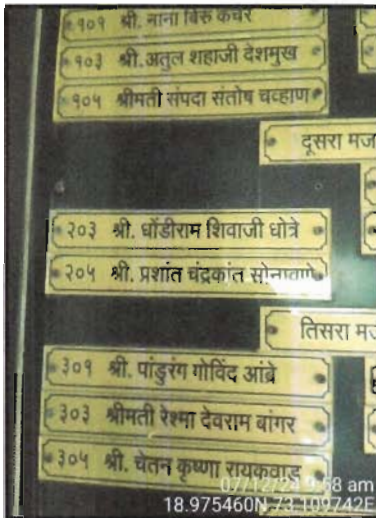 १०१ श्री. नाना बिरु कचरे
१०३ श्री. अतुल शहाजी देशमुख
१०५ श्रीमती संपदा संतोष चव्हाण
दूसरा मज
२०३ श्री. धोंडीराम शिवाजी धोत्रे
२०५ श्री. प्रशांत चंद्रकांत सोनावणे
तिसरा मज
३०१ श्री. पांडुरंग गोविंद आंब्रे
३०३ श्रीमती रेश्मा देवराम बांगर
३०५ श्री. चेतन कृष्णा रायकवाड
07/12/24 9:58 am
18.975460N,73.109742E